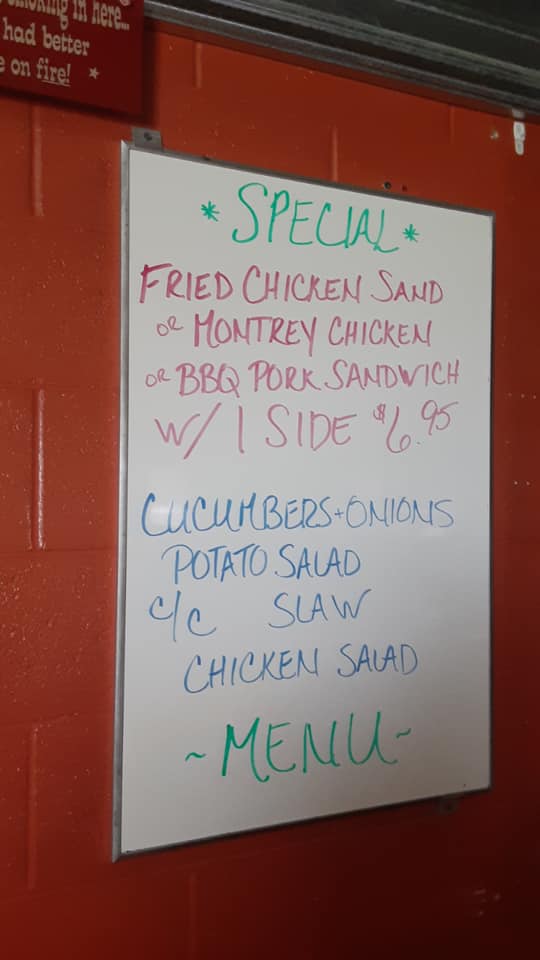 smoking in here...
had better
on fire!
* SPECIAL *
FRIED CHICKEN SAND
OR MONTREY CHICKEN
OR BBQ PORK SANDWICH
W/ 1 SIDE $6.95
CUCUMBERS + ONIONS
POTATO SALAD
C/C SLAW
CHICKEN SALAD
~ MENU ~